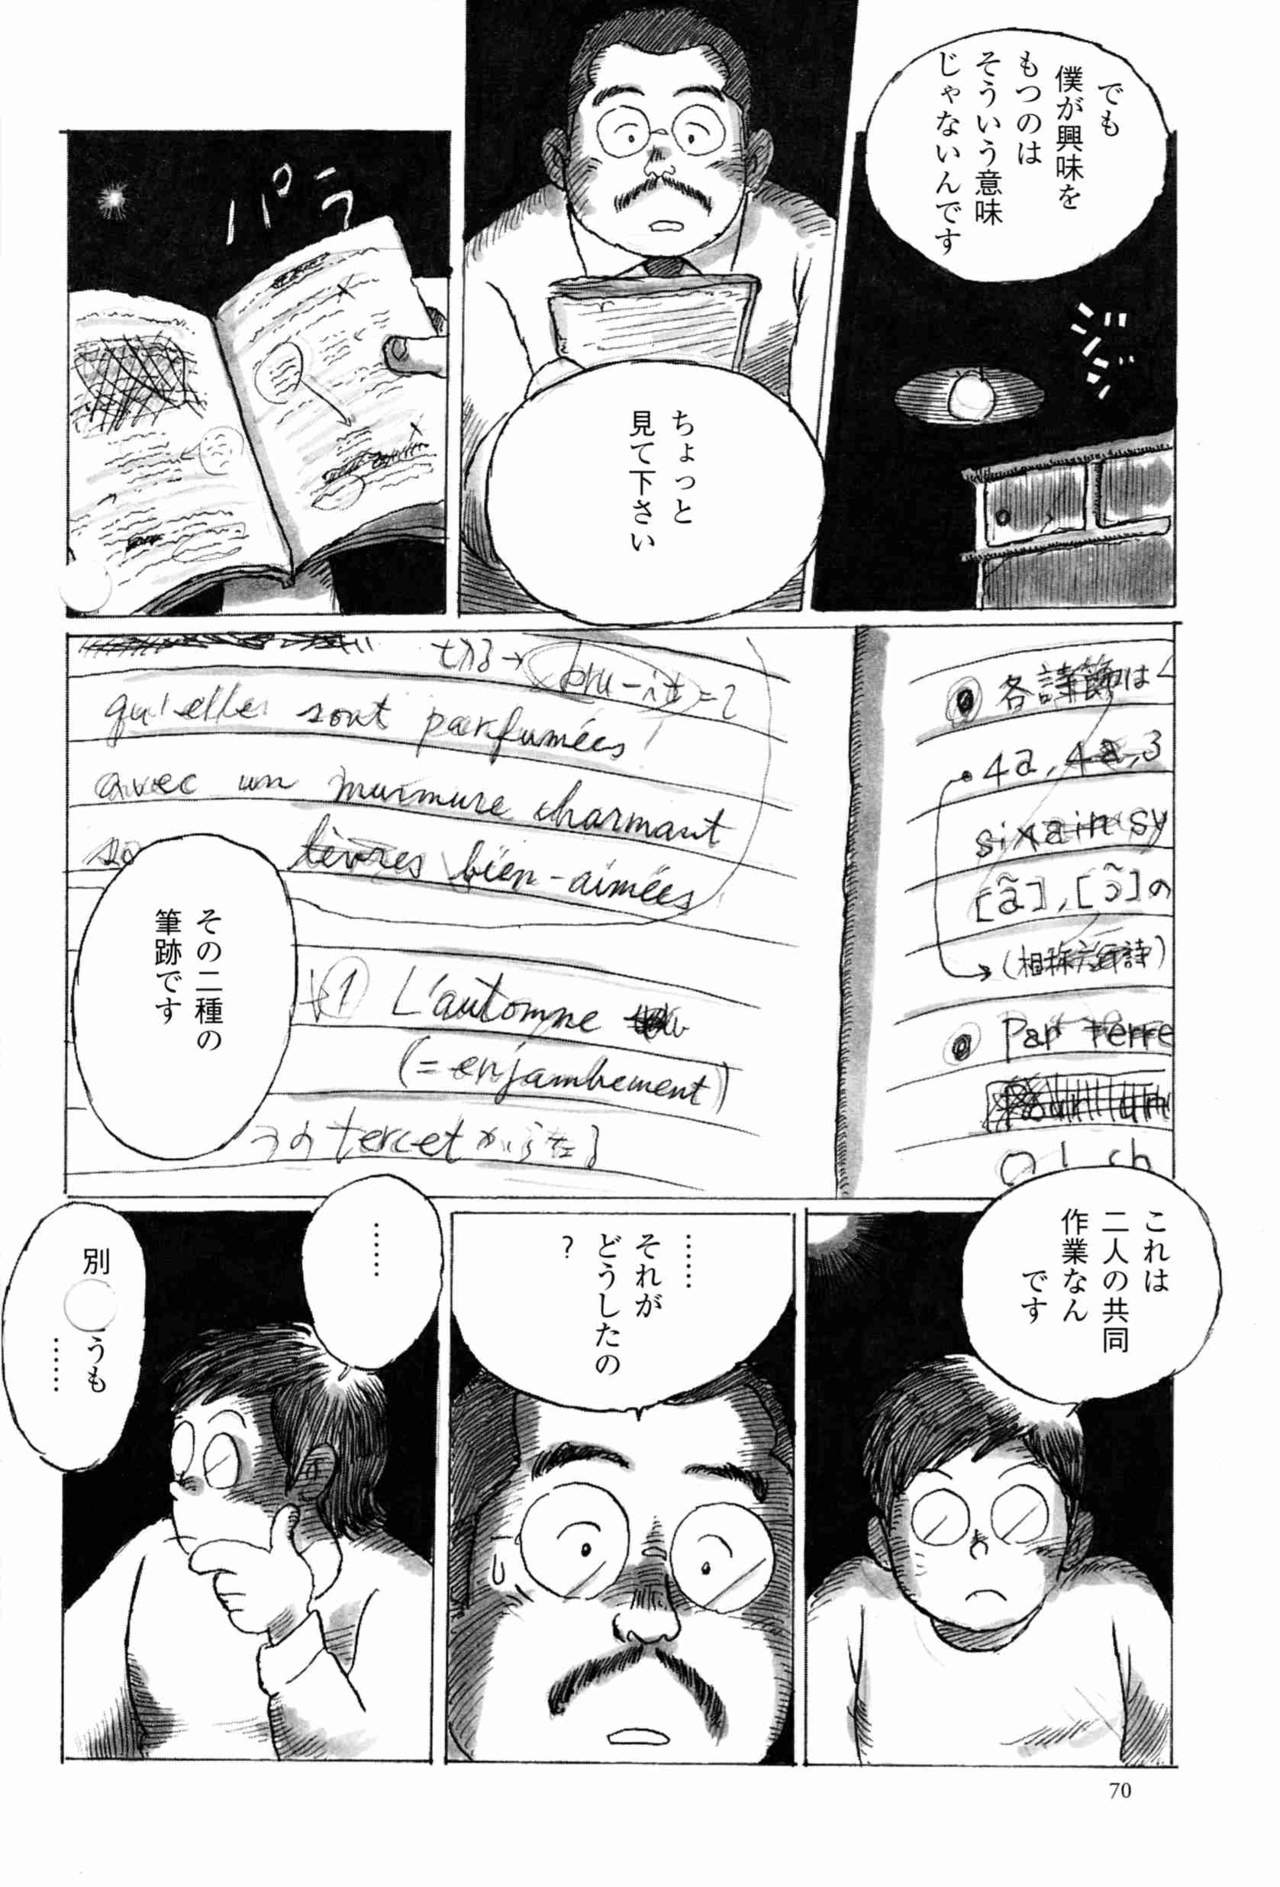 でも
僕が興味を
もつのは
そういう意味
じゃないんです
ジジ
ちょっと
見て下さい
パラ
各詩節は
4a, 4a, 3
sixain sy
[ã], [ɔ̃]の
(相称六行詩)
Par terre
bru-it=2
qu'elles sont parfumées
avec un murmure charmant
lèvres bien-aimées
1 L'automne
(=enjambement)
つのtercetからなる
その二種の
筆跡です
これは
二人の共同
作業なん
です
……
それが
どうしたの
?
……
別
うも
……
70